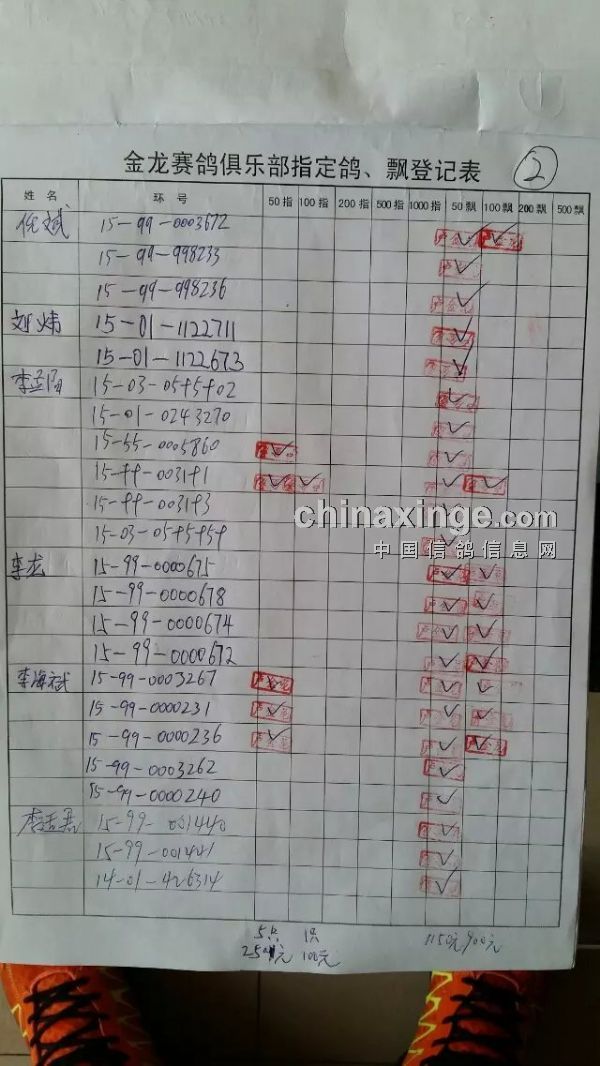 金龙赛鸽俱乐部指定鸽、飘登记表 2
姓名 环号 50指 100指 200指 500指 1000指 50飘 100飘 200飘 500飘
15-99-0003672
15-99-998233
15-99-998236
刘炜 15-01-1122711
15-01-1122673
15-01-0243270
15-55-0005860
chinaxinge.com
中国信鸽信息网
李龙 15-99-0000675
15-99-0000678
15-99-0000674
15-99-0000672
李海斌 15-99-0003267
15-99-0000231
15-99-0000236
15-99-0003262
15-99-0000240
15-99-001440
15-99-001441
14-01-426314
5只 1只
250元 100元 1150元 900元